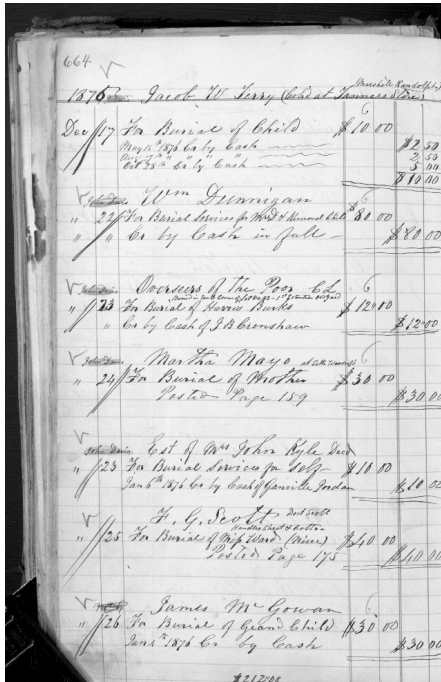 664
(Marshall Randolph)
1875 Jacob W Terry (Cold at Tanners Store)
6
Dec 17 For Burial of Child $10 00
May 12th 1876 Cr by Cash $2 50
" " Cr " by " Cash " 2 50
Oct 28th " Cr by " Cash 5 00
$10 00
Wm Dunnigan 6
" 22 For Burial Services for & Removal Child $80 00
" " Cr by Cash in full $80 00
Overseers of the Poor C.L. 6
" 23 For Burial of Harris Burks $12 00
" Cr by Cash of J B Crenshaw $12 00
Martha Mayo at 6
" 24 For Burial of Mother $30 00
Posted Page 159 $30 00
John Davis Est of Mrs John Kyle Decd
" 25 For Burial Services for Self $10 00
Jan 6th 1876 Cr by Cash of Granville Jordan $10 00
F. G. Scott Scott
" 25 For Burial of Miss Ward (Niece) $40 00
Posted Page 175 $40 00
James McGowan 6
" 26 For Burial of Grand Child $30 00
Jan 4th 1876 Cr by Cash $30 00
$212 00